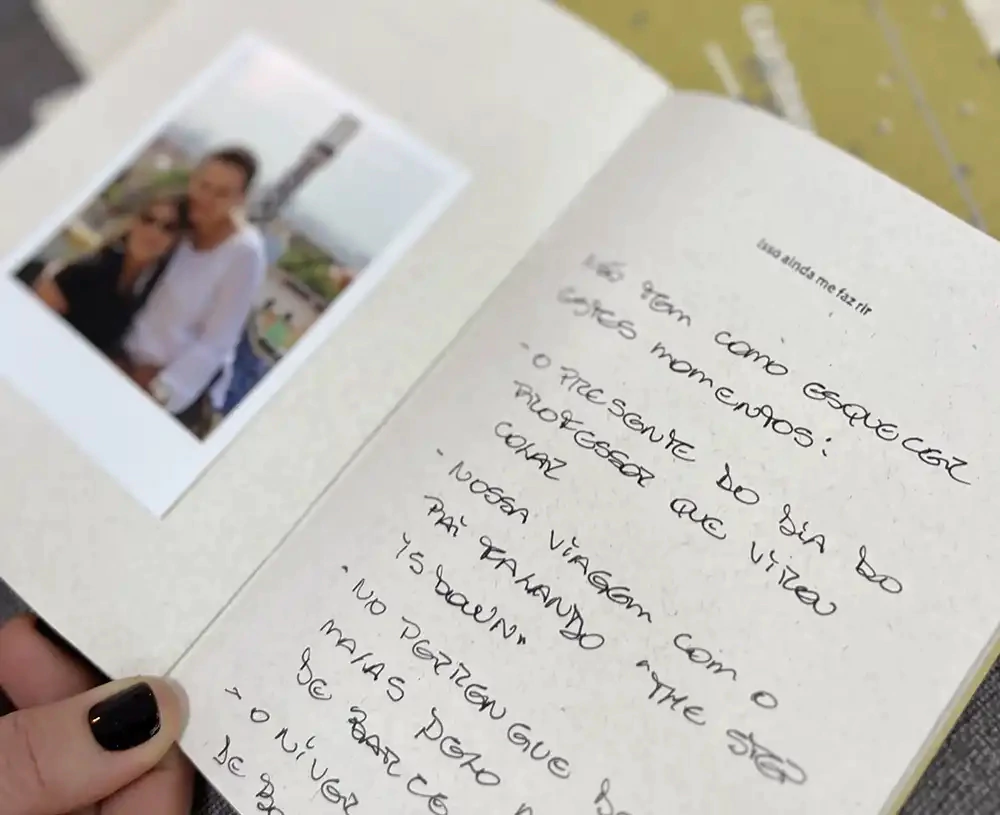 Isso ainda me faz rir
NÃO TEM COMO ESQUECER
ESTES MOMENTOS:
- O PRESENTE DO DIA DO
PROFESSOR QUE VIROU
COLAR
- NOSSA VIAGEM COM O
PAI FALANDO "THE STEP
IS DOWN"
- NO PERRENGUE DE
MALAS PELO
DE BARCE
- O NÍVER
DE